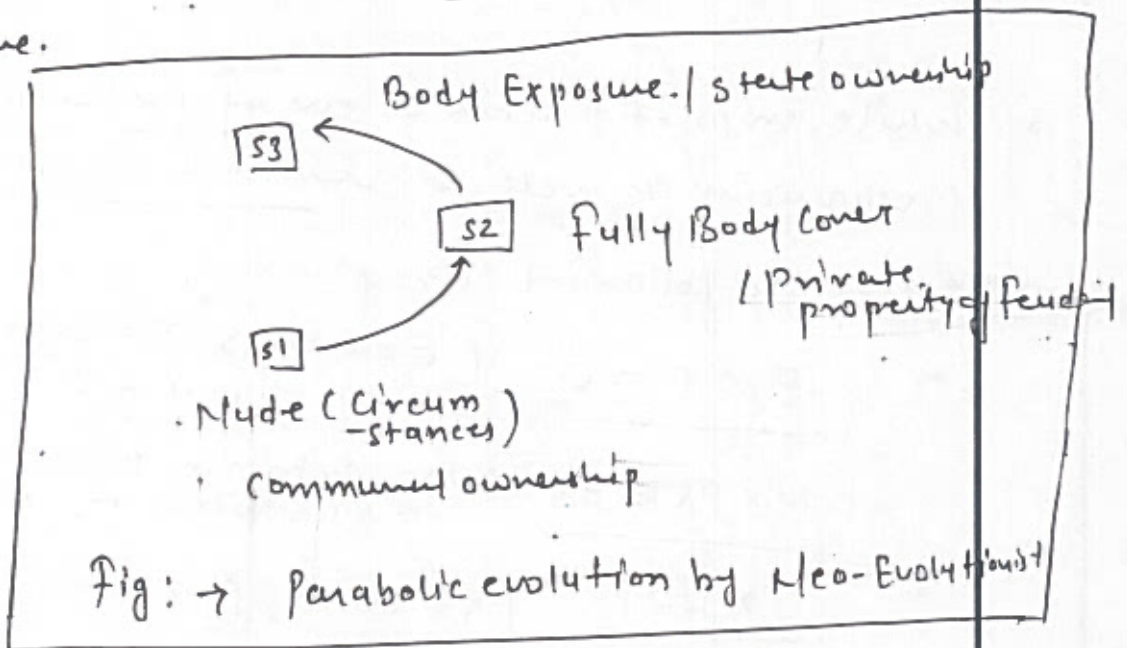 ve.
Body Exposure. / state ownership
S3
S2 Fully Body Cover
/ Private
property of feudal
S1
. Nude (Circum
-stances)
communal ownership
Fig: → Parabolic evolution by Neo-Evolutionist